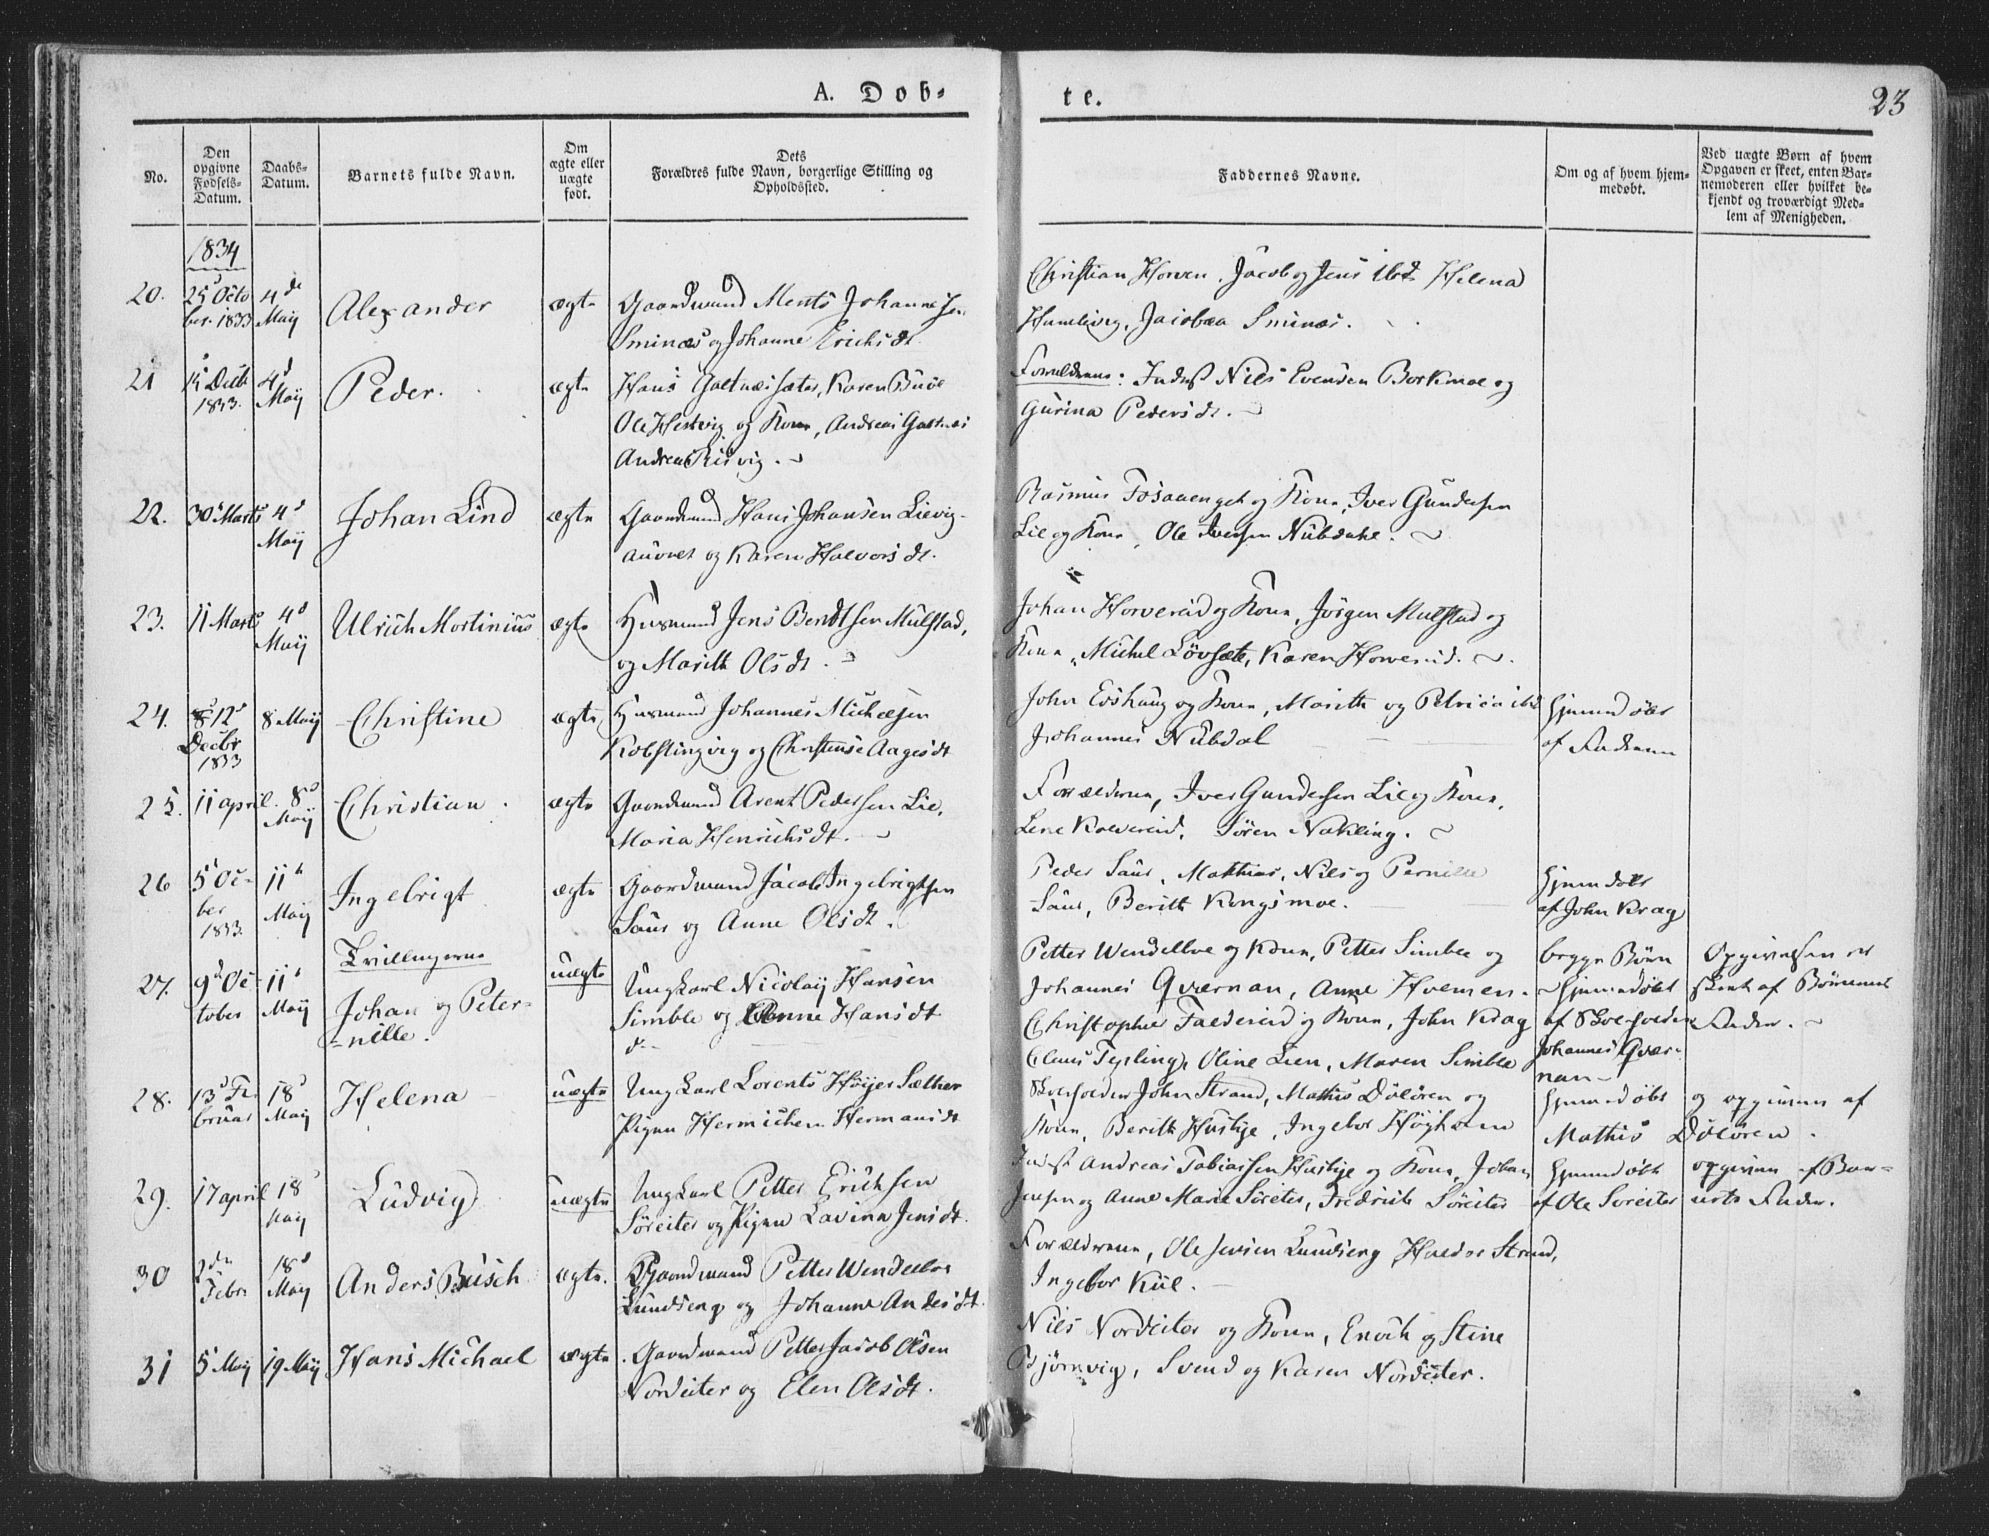 A. Døb-
te.
23
No.
Den opgivne Fødsels-Datum.
Daabs-Datum.
Barnets fulde Navn.
Om ægte eller uægte født.
Dets Forældres fulde Navn, borgerlige Stilling og Opholdssted.
Faddernes Navne.
Om og af hvem hjem-medøbt.
Ved uægte Børn af hvem Opgaven er skeet, enten Bar-nemoderen eller hvilket be-kjendt og troværdigt Med-lem af Menigheden.
1834
20. 25 Octo ber. 1833 4de Maij Alexander ægte Gaardmand Ments Johannesen
Sminæs og Johanne Erichsdt
Christian Horven, Jacob og Jens ibd Helena
Jacobæa Sminæs.
21 Decbr 1833. 4d Maij Peder. ægte Hans Galtnæs sæter, Karen
Ole og Kone, Andreas Galtnæs
Andrea Risvig.
Forældrene: Inderst Nils Evensen Borkmoe og
Gurina Pedersdt.
22. 30 Marts 4d Maij Johan Lind ægte Gaardmand Hans Johansen Lievig-
auonet og Karen Halvorsdt.
Rasmus Fosaaenget og Kone, Iver Gundersen
Lie og Kone, Ole Iversen Nubdahl.
23. 11 Marts 4d Maij Ulrich Mortinius ægte Huusmand Jens Berntsen Mulstad,
og Marith Olsdt.
Johan Horvereid og Kone, Jørgen Mulstad og
Kone, Michel Løvsæte, Karen Horvereid.
24. 12 Decbr 1833 8 Maij Christine ægte Huusmand Johannes Michelsen
og Christense Aagesdt
John Eoshaug og Kone, Marith og Petrica ibd
Johannes Nubdal
Hjemmedøbt
af Faderen
25. 11 april 8d Maij Christian. ægte Gaardmand Arent Pedersen Lie,
Maria Henrichsdt.
Forældrene, Iver Gundersen Lie og Kone,
Lene Kolvereid, Søren Nakling.
26 5 Oc-ber 1833. 11 Maij Ingebrigt ægte Gaardmand Jacob Ingebrigtsen
Saus og Anne Olsdt.
Peder Saus, Mathias, Nils og Pernille
Saus, Berith Kongsmoe.
Hjemdøbt
af John Krag
27. 9d Oc-tober 11 Maij Tvillingerne
Johan og Peter-
nille.
uægte Ungkarl Nicolaij Hansen
Simble og Anne Hansdt
Petter Wendelboe og Kone, Petter Simble og
Johannes Qværnan, Anne Hvemen.
Christopher Faldereid og Kone, John Krag
Claus Terling, Oline Lien, Maren Simble
begge Børn
Hjemmedøbt
af Skoleholder
Johannes Qvær-
nan
Opgivelsen er
skeet af Børnenes
Fader.
28. 13 Fe-bruar 18d Maij Helena uægte Ungkarl Lorents Høijer Sæther
Pigen Hermichen Hermansdt
Skoleholder John Strand, Mathis Døløren og
Kone, Berith Hustije, Ingebor Høyholm
Hjemmedøbt og opgiven af
Mathis Døløren.
29. 17 april 18d Maij Ludvig uægte Ungkarl Petter Erichsen
Søreiter og Pigen Lavina Jensdt.
Inderst Andreas Tobiassen Hustije og Kone, Johan
Jensen og Anne Marie Søreiter, Fredrich Søreiter
Hjemmedøbt
af Ole Søreiter
opgiven af Bar-
nets Fader.
30 Febr 18d Maij Anders Busch ægte. Gaardmand Petter Wendelboe
Lundseng og Johanne Andersdt.
Forældrene, Ole Jensen Lundseng, Haldor Strand,
Ingebor Kiil.
31 5 Maij 19 Maij Hans Michael ægte Gaardmand Petter Jacob Olsen
Nordeiter og Elen Olsdt.
Niels Nordeiter og Kone, Enoch og Stine
Bjørnvig, Svend og Karen Nordeiter.